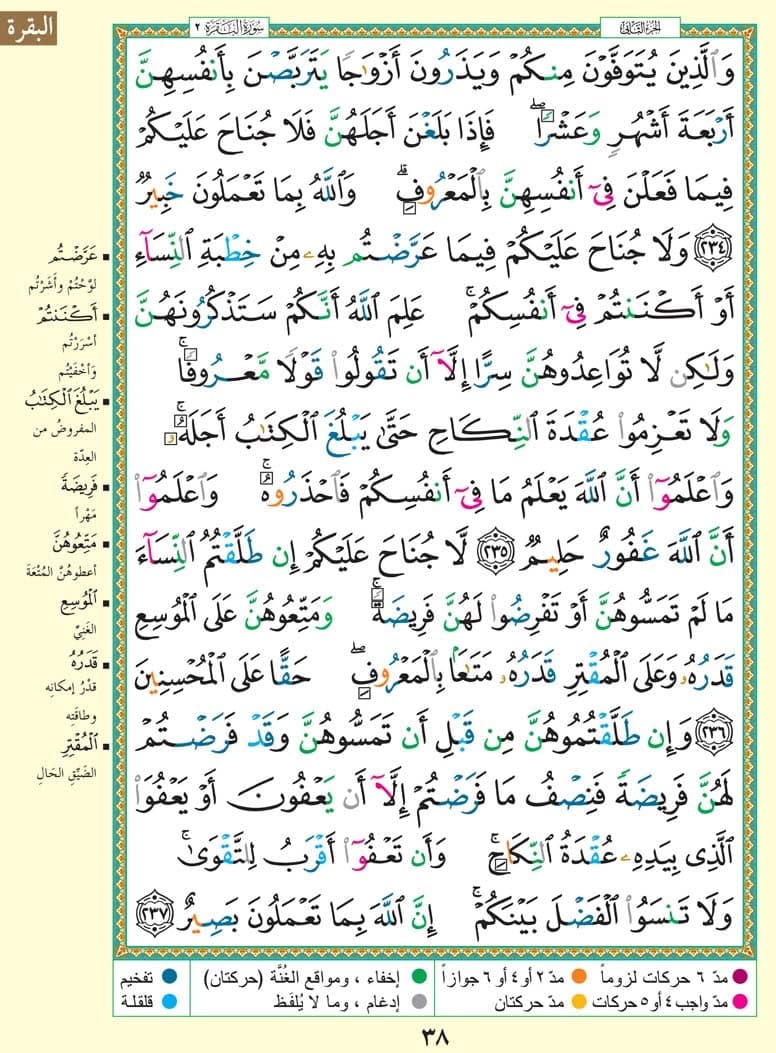 البقرة
الجزء الثاني
سورة البقرة ٢
وَالَّذِينَ يُتَوَفَّوْنَ مِنكُمْ وَيَذَرُونَ أَزْوَٰجًا يَتَرَبَّصْنَ بِأَنفُسِهِنَّ
أَرْبَعَةَ أَشْهُرٍ وَعَشْرًا ۖ فَإِذَا بَلَغْنَ أَجَلَهُنَّ فَلَا جُنَاحَ عَلَيْكُمْ
فِيمَا فَعَلْنَ فِىٓ أَنفُسِهِنَّ بِالْمَعْرُوفِ ۗ وَاللَّهُ بِمَا تَعْمَلُونَ خَبِيرٌ
﴿٢٣٤﴾ وَلَا جُنَاحَ عَلَيْكُمْ فِيمَا عَرَّضْتُم بِهِۦ مِنْ خِطْبَةِ النِّسَآءِ
أَوْ أَكْنَنتُمْ فِىٓ أَنفُسِكُمْ ۚ عَلِمَ اللَّهُ أَنَّكُمْ سَتَذْكُرُونَهُنَّ
وَلَٰكِن لَّا تُوَاعِدُوهُنَّ سِرًّا إِلَّآ أَن تَقُولُوا قَوْلًا مَّعْرُوفًا ۚ
وَلَا تَعْزِمُوا عُقْدَةَ النِّكَاحِ حَتَّىٰ يَبْلُغَ الْكِتَٰبُ أَجَلَهُۥ ۚ
وَاعْلَمُوٓا أَنَّ اللَّهَ يَعْلَمُ مَا فِىٓ أَنفُسِكُمْ فَاحْذَرُوهُ ۚ وَاعْلَمُوٓا
أَنَّ اللَّهَ غَفُورٌ حَلِيمٌ ﴿٢٣٥﴾ لَّا جُنَاحَ عَلَيْكُمْ إِن طَلَّقْتُمُ النِّسَآءَ
مَا لَمْ تَمَسُّوهُنَّ أَوْ تَفْرِضُوا لَهُنَّ فَرِيضَةً ۚ وَمَتِّعُوهُنَّ عَلَى الْمُوسِعِ
قَدَرُهُۥ وَعَلَى الْمُقْتِرِ قَدَرُهُۥ مَتَٰعًا بِالْمَعْرُوفِ ۖ حَقًّا عَلَى الْمُحْسِنِينَ
﴿٢٣٦﴾ وَإِن طَلَّقْتُمُوهُنَّ مِن قَبْلِ أَن تَمَسُّوهُنَّ وَقَدْ فَرَضْتُمْ
لَهُنَّ فَرِيضَةً فَنِصْفُ مَا فَرَضْتُمْ إِلَّآ أَن يَعْفُونَ أَوْ يَعْفُوَا
الَّذِى بِيَدِهِۦ عُقْدَةُ النِّكَاحِ ۚ وَأَن تَعْفُوٓا أَقْرَبُ لِلتَّقْوَىٰ ۚ
وَلَا تَنسَوُا الْفَضْلَ بَيْنَكُمْ ۚ إِنَّ اللَّهَ بِمَا تَعْمَلُونَ بَصِيرٌ ﴿٢٣٧﴾
عَرَّضْتُم
لوّحْتُمْ وأشَرْتُم
أَكْنَنتُمْ
أسْرَرْتُم
وَأخْفَيْتُم
يَبْلُغَ الْكِتَٰبُ
المفروضُ من
العِدّة
فَرِيضَةً
مَهْراً
مَتِّعُوهُنَّ
أعطوهُنَّ المُتْعَةَ
الْمُوسِعِ
الغَنِيِّ
قَدَرُهُ
قدْرُ إمكانِه
وطاقَتِه
الْمُقْتِرِ
الضَّيِّقِ الحَالِ
مدّ ٦ حركات لزوماً
مدّ ٢ أو ٤ أو ٦ جوازاً
إخفاء ، ومواقع الغُنَّة (حركتان)
تفخيم
مدّ واجب ٤ أو ٥ حركات
مدّ حركتان
إدغام ، وما لا يُلفَظ
قلقلة
٣٨